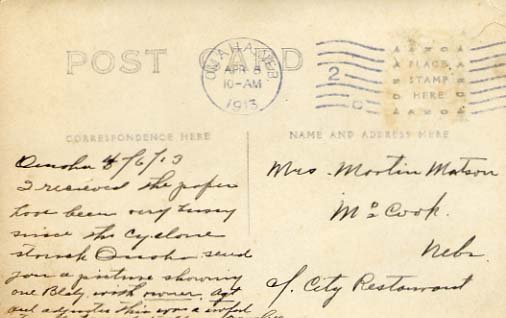 POST CARD
OMAHA, NEB.
APR 8
10-AM
1913
2
PLACE
STAMP
HERE
CORRESPONDENCE HERE
NAME AND ADDRESS HERE
Omaha 4/6/13
I recieved the paper
have been very bussy
since the Cyclone
struck Omaha send
you a picture showing
one Bldg with owner, agt
and adjuster this was a
Mrs. Martin Matson
McCook.
Nebr
℅ City Restaurant